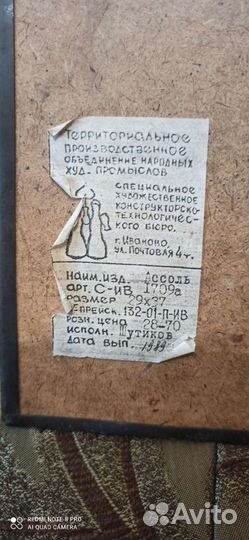 Территориальное
производственное
объединение народных
худ. промыслов
специальное
художественное
конструкторско-
технологичес-
кого бюро.
г. Иваново
ул. Почтовая 4
наим. изд. Ассоль
арт. С-ИВ 1709а
размер 29х37
прейск. 132-01-П-ИВ
розн. цена 28-70
исполн. Шутиков
дата вып. 1989
REDMI NOTE 8 PRO
AI QUAD CAMERA
Avito